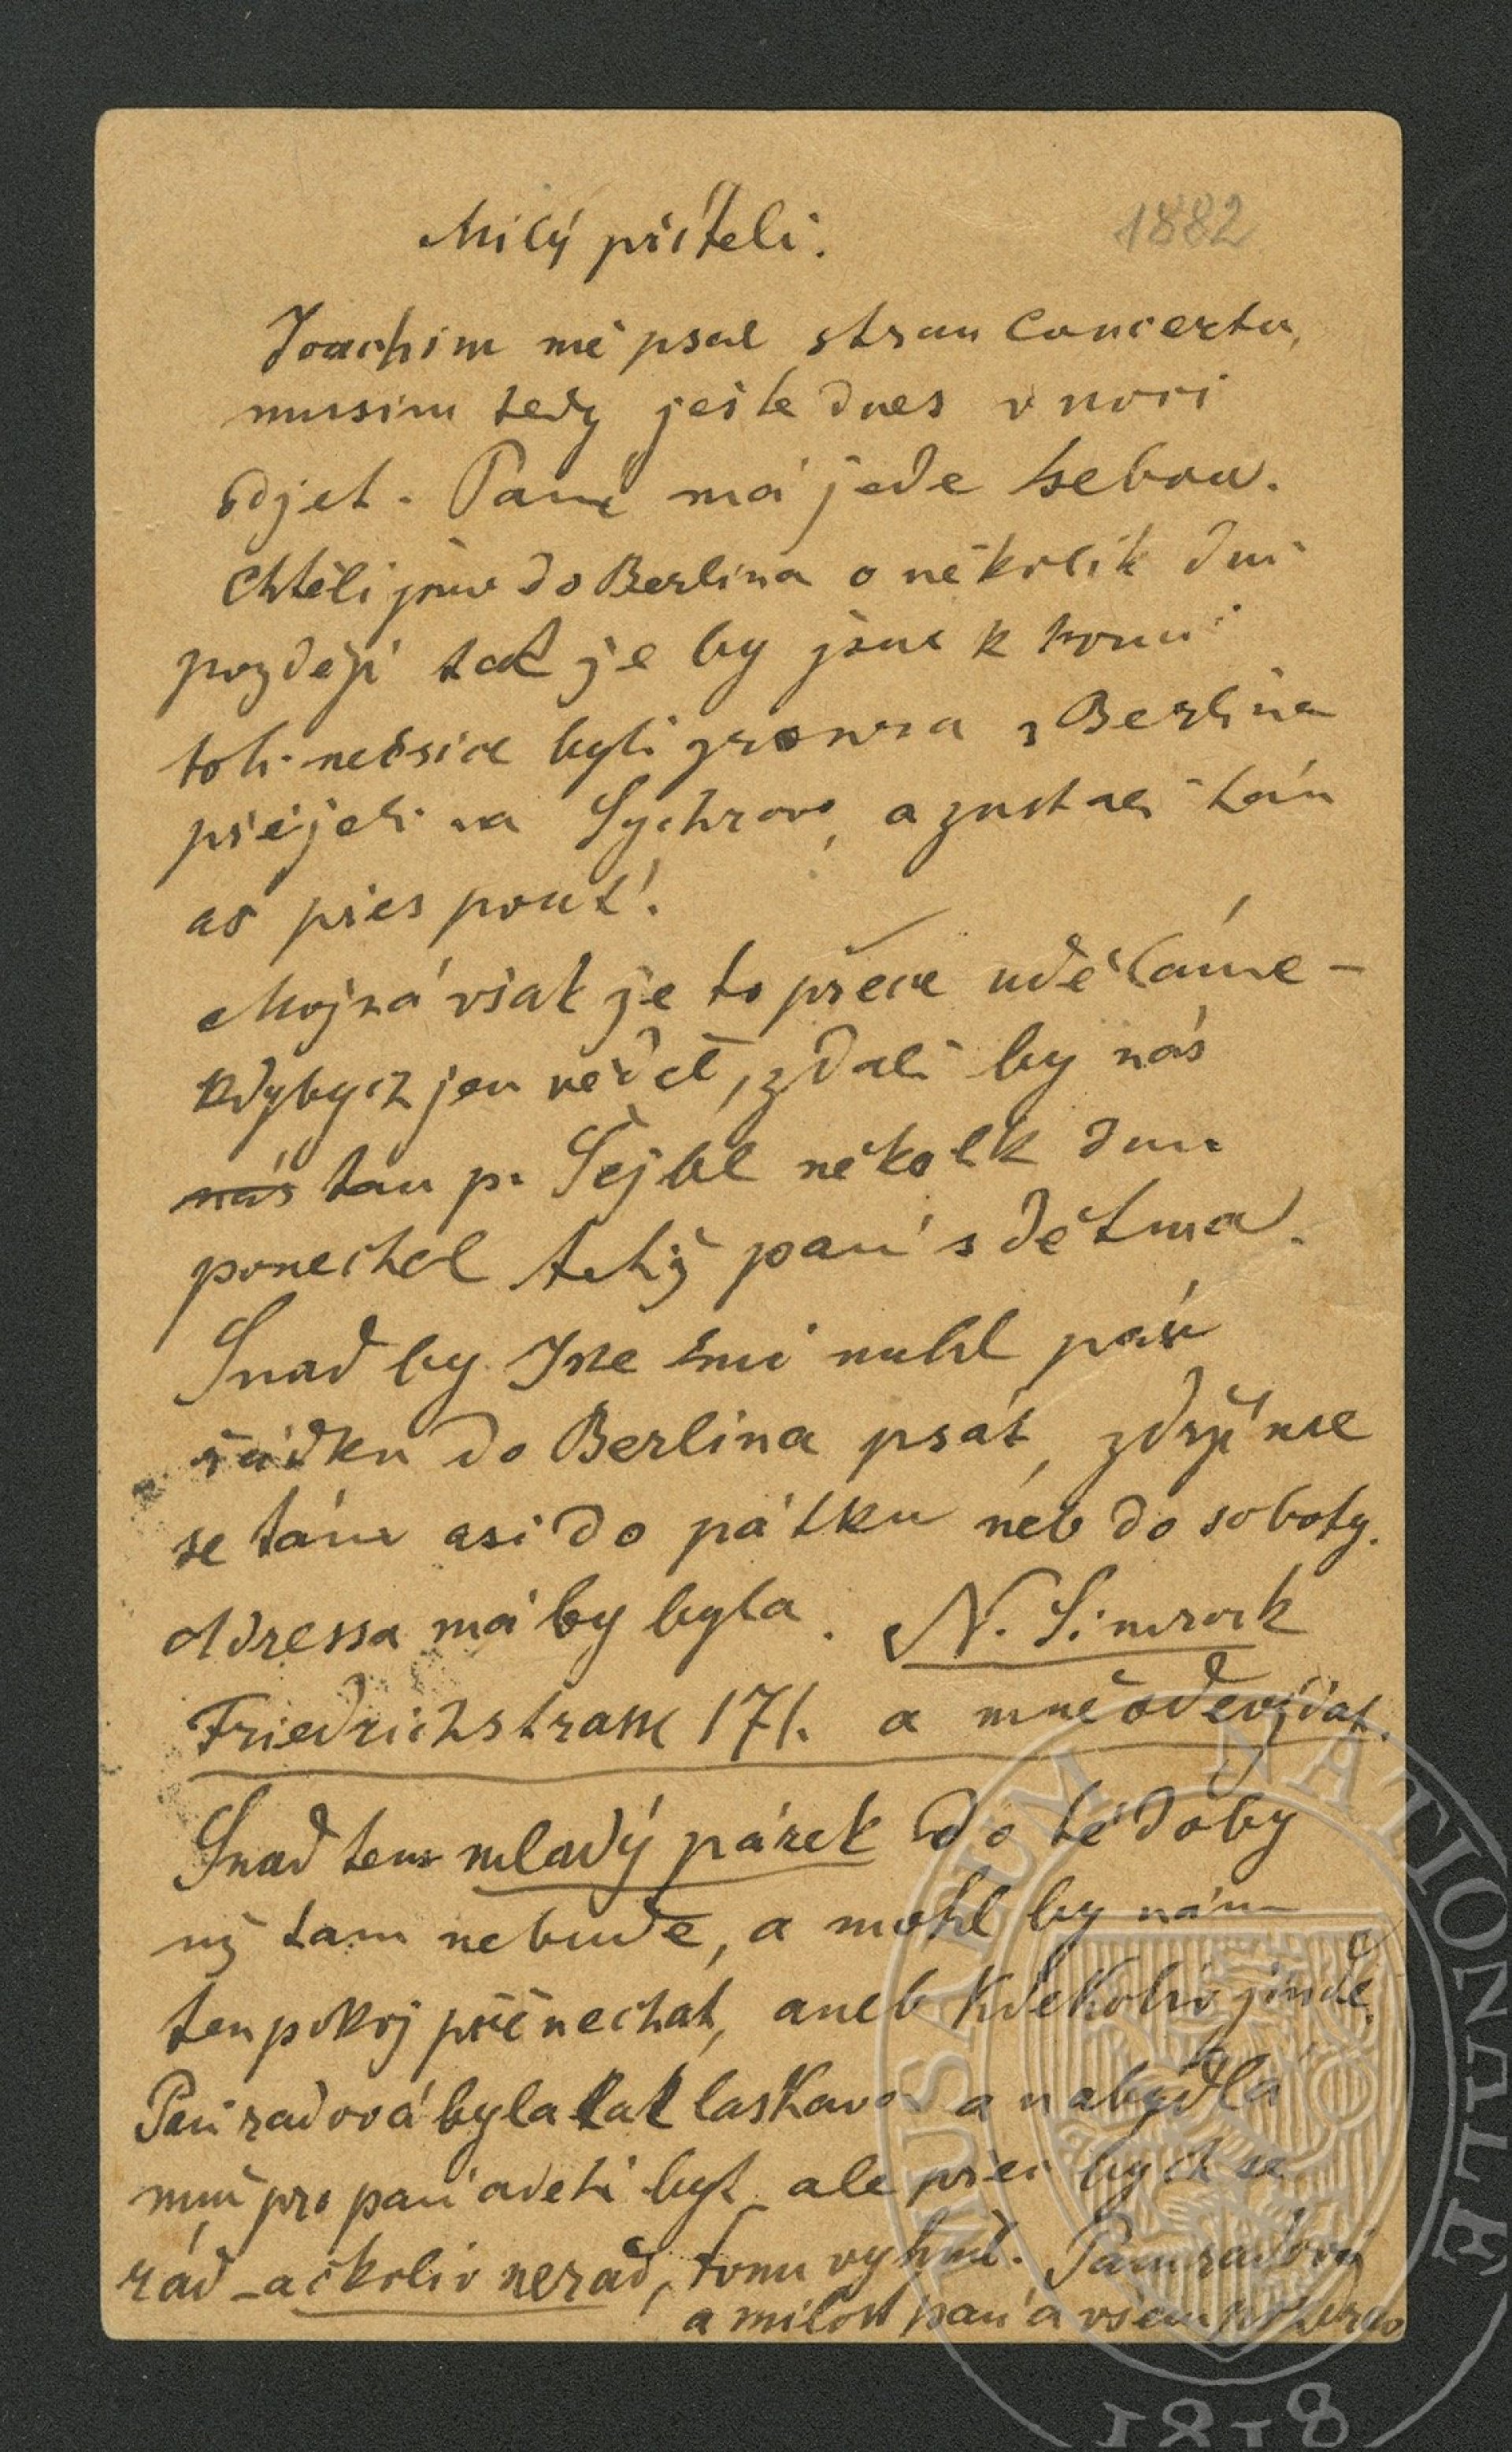 Milý příteli.
1882
Joachim mě psal stran Concertu,
musim tedy ješte dnes v noci
odjet. Paní má jede sebou.
Chtěli jsme do Berlina o několik dní
pozdeji tak že by jsme k konci
toh. měsice byli zrovna z Berlina
přijeli na Sychrov, a zustali tám
až přes pouť.
Možná však že to přece uděláme –
kdybych jen věděl, zdali by nás
nás tam p. Šejbl několik dnu
ponechal totiž paní s dětma.
Snad by Jste mi mohl pár
řádku do Berlina psát, zdržíme
se tám asi do pátku neb do soboty.
Adressa má by byla. N. Simrock
Friedrichstrasse 171. a mně odevzdat.
Snad ten mladý párek do té doby
už tam nebude, a mohl by nám
ten pokoj přenechat, aneb kdekoliv jinde.
Paní radová byla tak laskava a nabydla
mně pro paní a děti byt, ale přec bych se
rád – ačkoliv nerad, tomu vyhnul. Paní radové
a milost paní a všem
MUSAEUM NATIONALE
1818